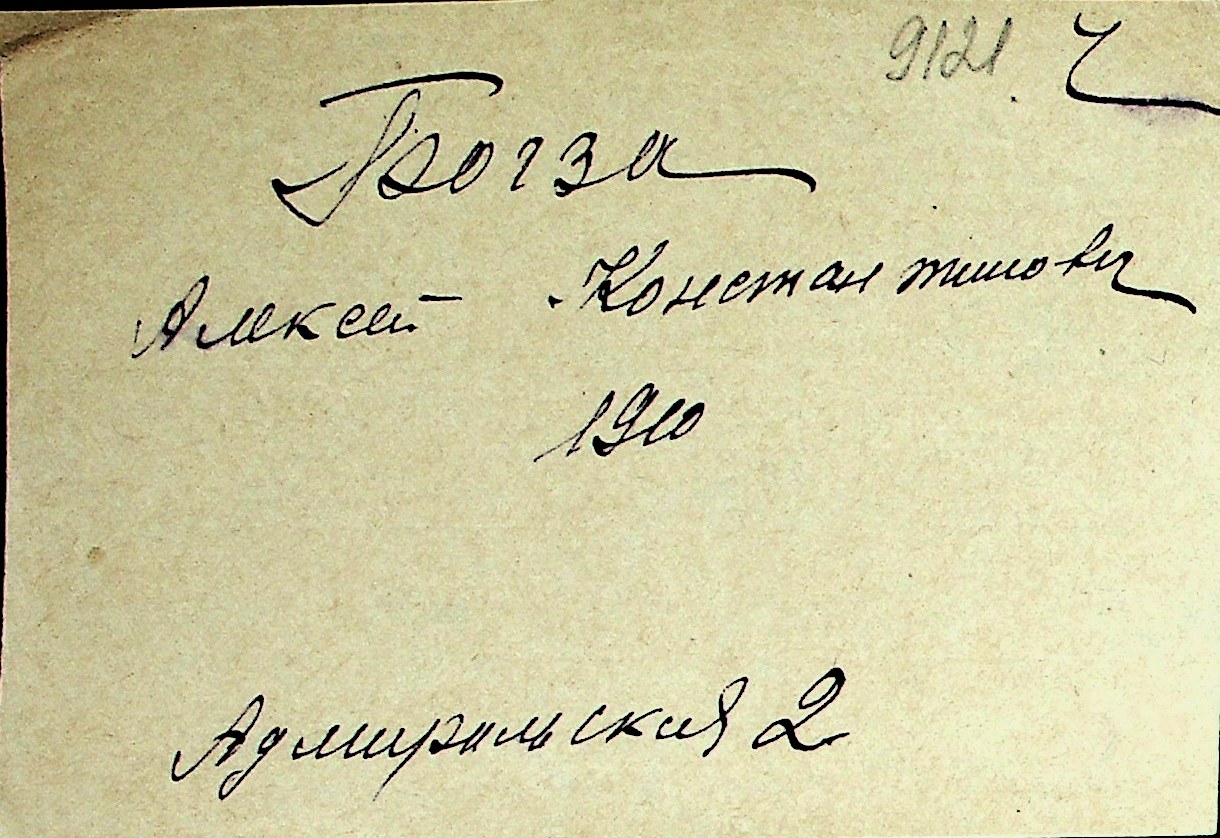 9121 Ч
Богза
Алексей Константинович
1910
Адмиральская 2